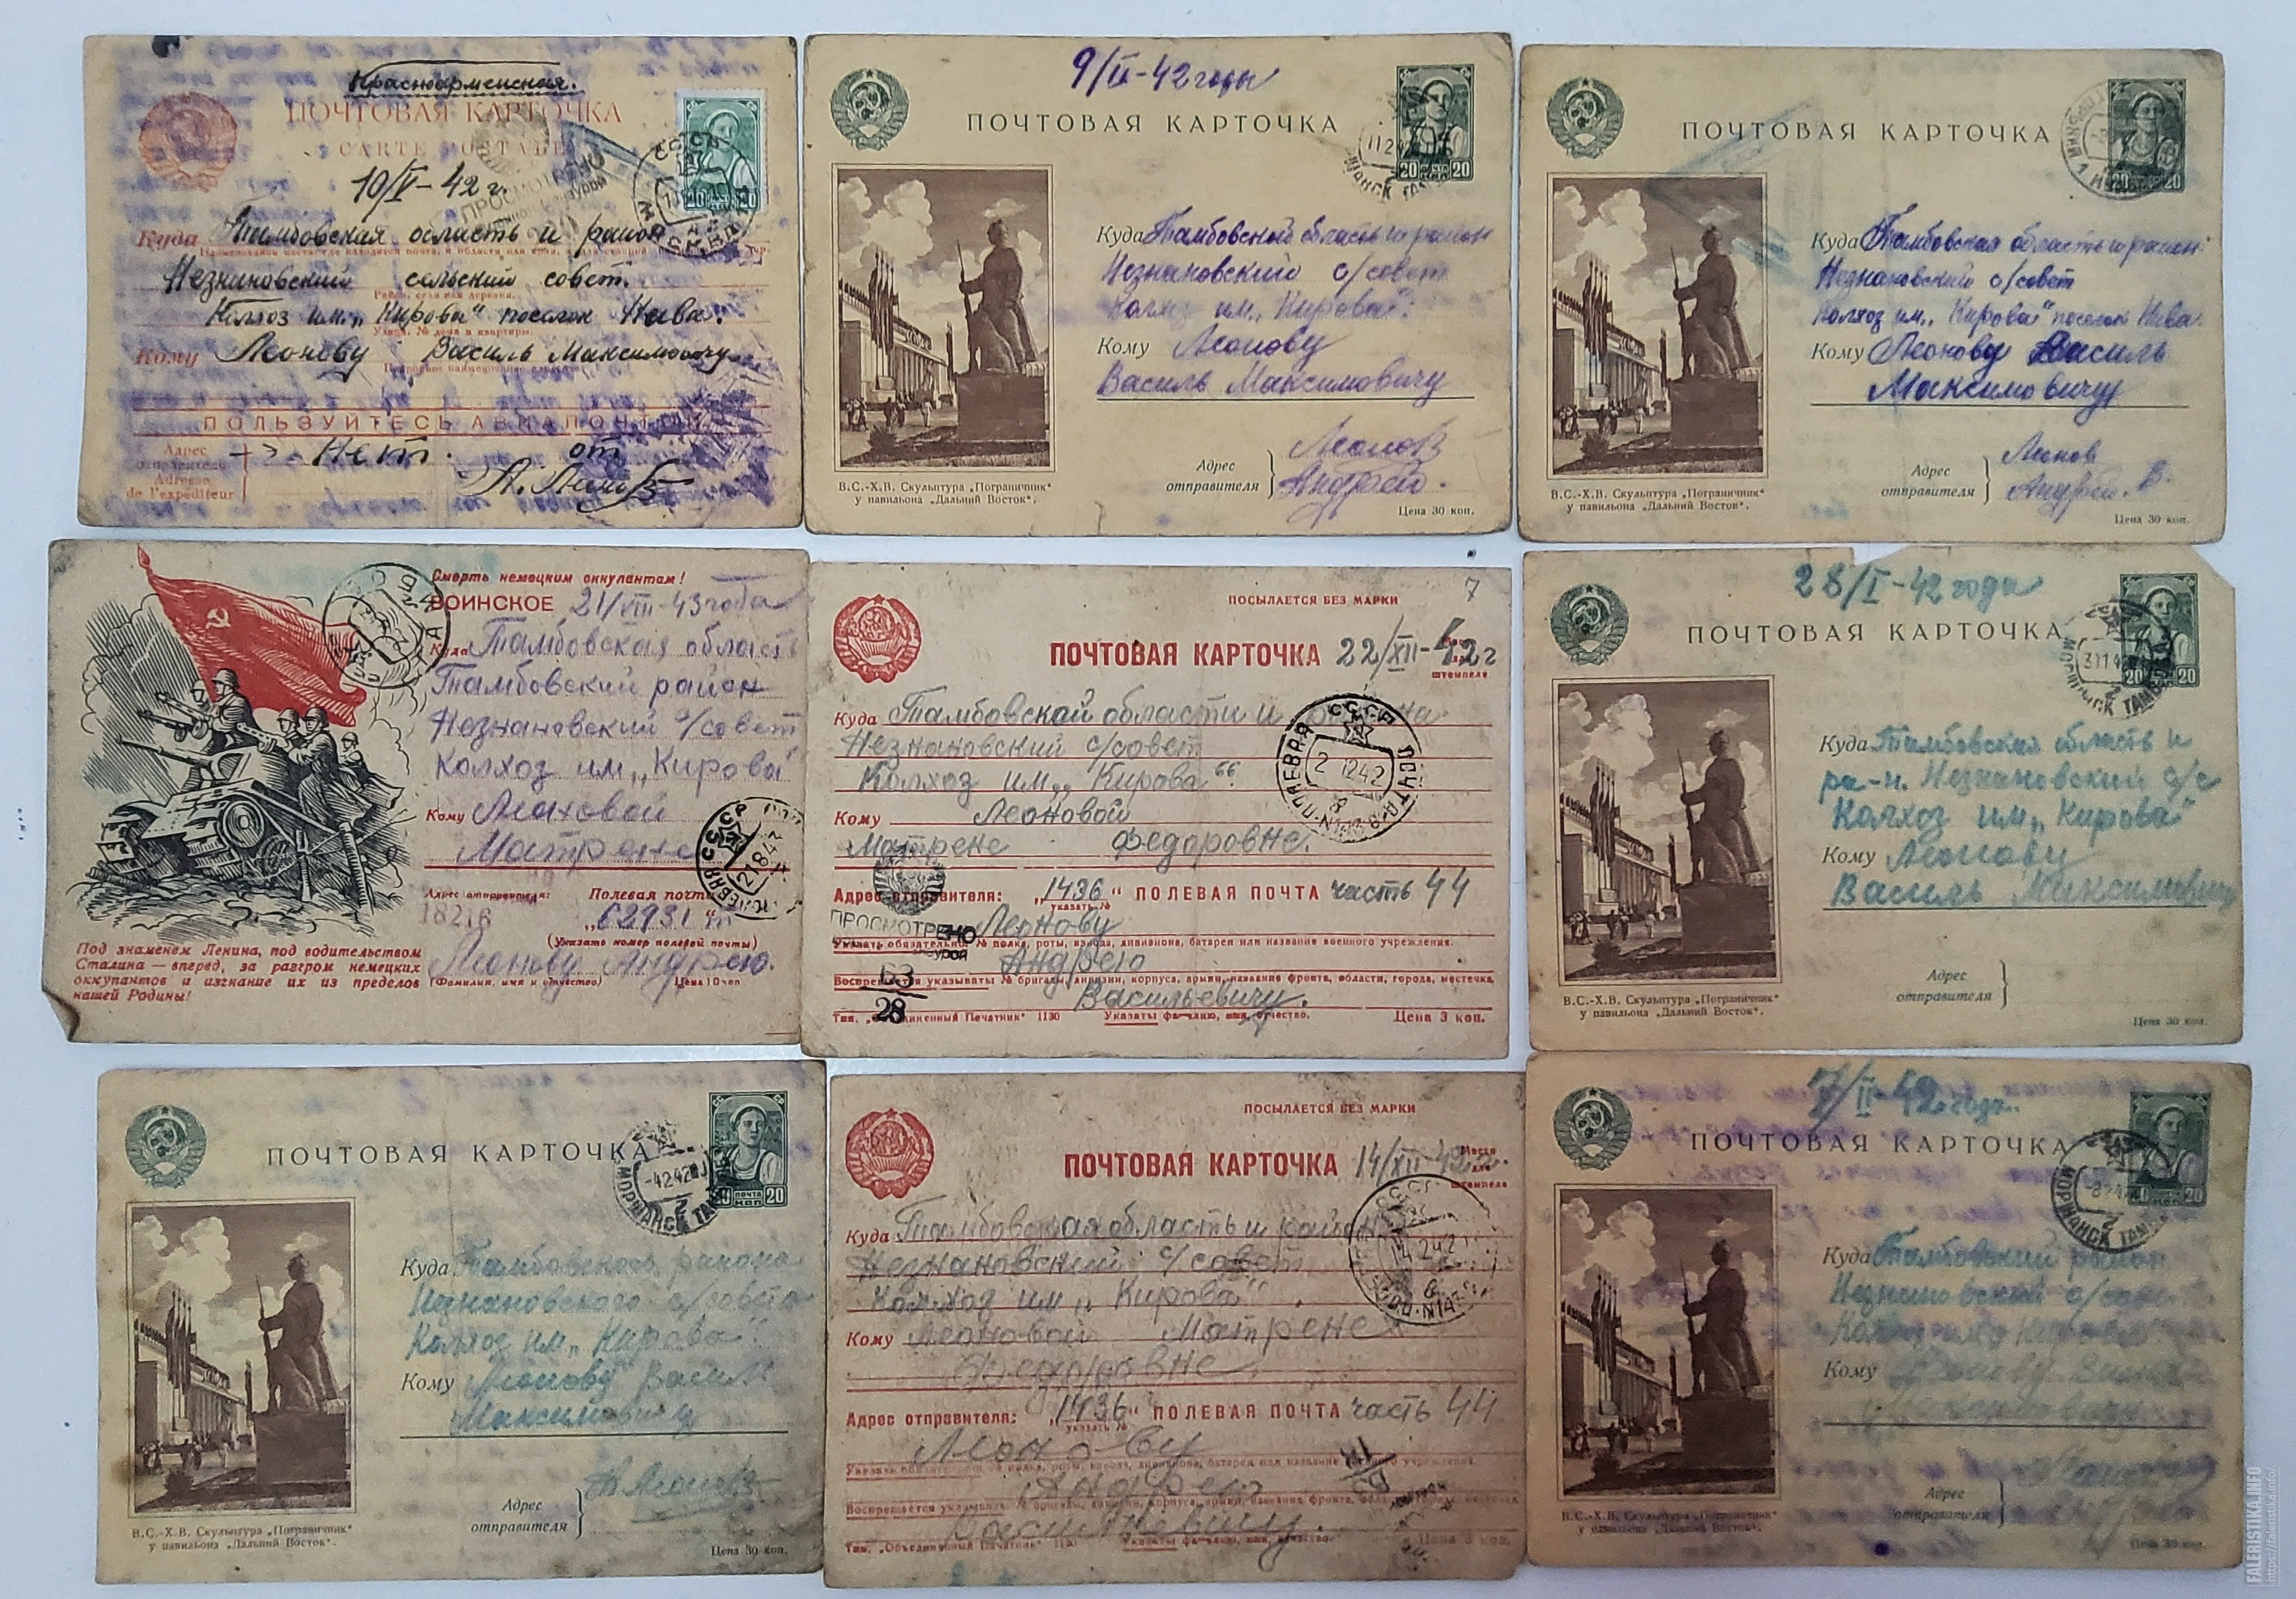 Красноармейская.
ПОЧТОВАЯ КАРТОЧКА
CARTE POSTALE
10/V-42 г.
ПРОСМОТРЕНО
СССР
МОСКВА
20 20
Куда Тамбовская область и район
Незнановский сельский совет.
Район, село или деревня.
Колхоз им. „Кирова" поселок Нива.
Улица, № дома и квартиры.
Кому Леонову Василь Максимовичу
Подробное наименование адресата
ПОЛЬЗУЙТЕСЬ АВИАПОЧТОЙ
Адрес отправителя
Adresse de l'expéditeur
Нет. от
А. Леонов
9/II-42 годы
ПОЧТОВАЯ КАРТОЧКА
20 ПОЧТА КОП 20
Куда Тамбовской область и район
Незнановский с/совет
Колхоз им. „Кирова".
Кому Леонову
Василь Максимовичу
Адрес отправителя
Леонов
Андрей.
В.С.-Х.В. Скульптура „Пограничник"
у павильона „Дальний Восток".
Цена 30 коп.
ПОЧТОВАЯ КАРТОЧКА
20 20
Куда Тамбовская область и район
Незнановский с/совет
Колхоз им. „Кирова" поселок Нива.
Кому Леонову Василь
Максимовичу
Адрес отправителя
Леонов
Андрей. В.
В.С.-Х.В. Скульптура „Пограничник"
у павильона „Дальний Восток".
Цена 30 коп.
Смерть немецким оккупантам!
ВОИНСКОЕ 21/VIII-43 года
Куда Тамбовская область
Тамбовский район
Незнановский с/совет
Колхоз им. „Кирова"
Кому Леоновой
Матрене
Адрес отправителя: Полевая почта
18216
„62931"
(Указать номер полевой почты)
Леонову Андрею.
(Фамилия, имя и отчество) Цена 10 коп
Под знаменем Ленина, под водительством
Сталина — вперед, за разгром немецких
оккупантов и изгнание их из пределов
нашей Родины!
7
ПОСЫЛАЕТСЯ БЕЗ МАРКИ
ПОЧТОВАЯ КАРТОЧКА 22/XII-42 г
Куда Тамбовской области и района
Незнановский с/совет
Колхоз им. „Кирова".
СССР
ПОЛЕВАЯ ПОЧТА
Кому Леоновой
Матрене Федоровне.
Адрес отправителя: „1436" ПОЛЕВАЯ ПОЧТА часть 44
указать №
ПРОСМОТРЕНО
Леонову
Указать обязательно № полка, роты, взвода, дивизиона, батареи или название военного учреждения.
Андрею
Воспрещается указывать № бригады, дивизии, корпуса, армии, название фронта, области, города, местечка.
Васильевичу.
28
Тип. „Объединенный Печатник" 1130 Указать фамилию, имя, отчество. Цена 3 коп.
28/I-42 года
ПОЧТОВАЯ КАРТОЧКА
20 20
МОРШАНСК ТАМБ
Куда Тамбовская область и
ра-н. Незнановский с/с
Колхоз им. „Кирова"
Кому Леонову
Василь Максимович
Адрес отправителя
В.С.-Х.В. Скульптура „Пограничник"
у павильона „Дальний Восток".
Цена 30 коп.
ПОЧТОВАЯ КАРТОЧКА
ПОЧТА КОП 20
МОРШАНСК ТАМБ
Куда Тамбовского района
Незнановского с/совета
Колхоз им. „Кирова"
Кому Леонову Василь
Максимовичу
Адрес отправителя
А. Леонов
В.С.-Х.В. Скульптура „Пограничник"
у павильона „Дальний Восток".
Цена 30 коп.
ПОСЫЛАЕТСЯ БЕЗ МАРКИ
ПОЧТОВАЯ КАРТОЧКА 14/XII-42 г.
Место для штемпеля
Куда Тамбовская область и район
Незнановский с/совет
Колхоз им „Кирова"
Кому Леоновой Матрене
Федоровне
Адрес отправителя: „1436" ПОЛЕВАЯ ПОЧТА часть 44
указать №
Леонову
Андрею
Васильевичу.
Тип. „Объединенный Печатник" Указать фамилию, имя, отчество. Цена 3 коп.
7/II-42 года.
ПОЧТОВАЯ КАРТОЧКА
МОРШАНСК ТАМБ
Куда Тамбовский район
Незнановский с/совет
Колхоз им Кирова
Кому Леонову
Адрес отправителя
В.С.-Х.В. Скульптура „Пограничник"
у павильона „Дальний Восток".
Цена 30 коп.
FALERISTIKA.INFO
https://faleristika.info/